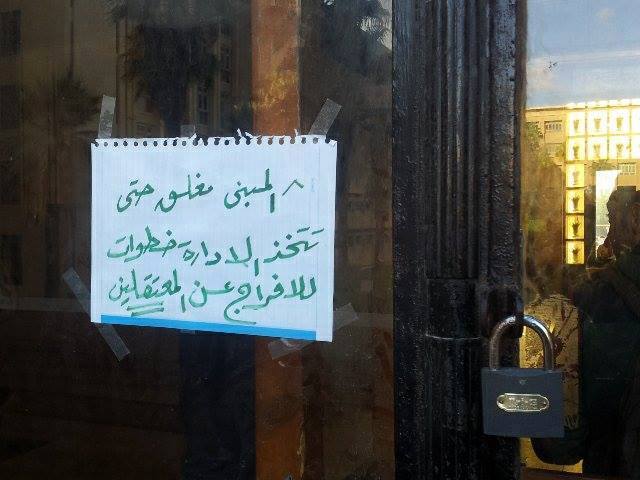 ٨ المبنى مغلق حتى
تتخذ الادارة خطوات
للافراج عن المعتقلين